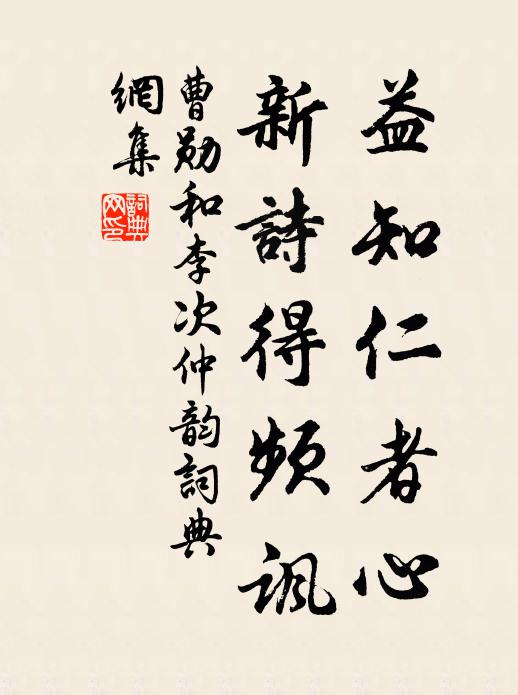 益知仁者心
新詩得頻諷
曹勛和李次仲韵詞典
網集
詞典
网印